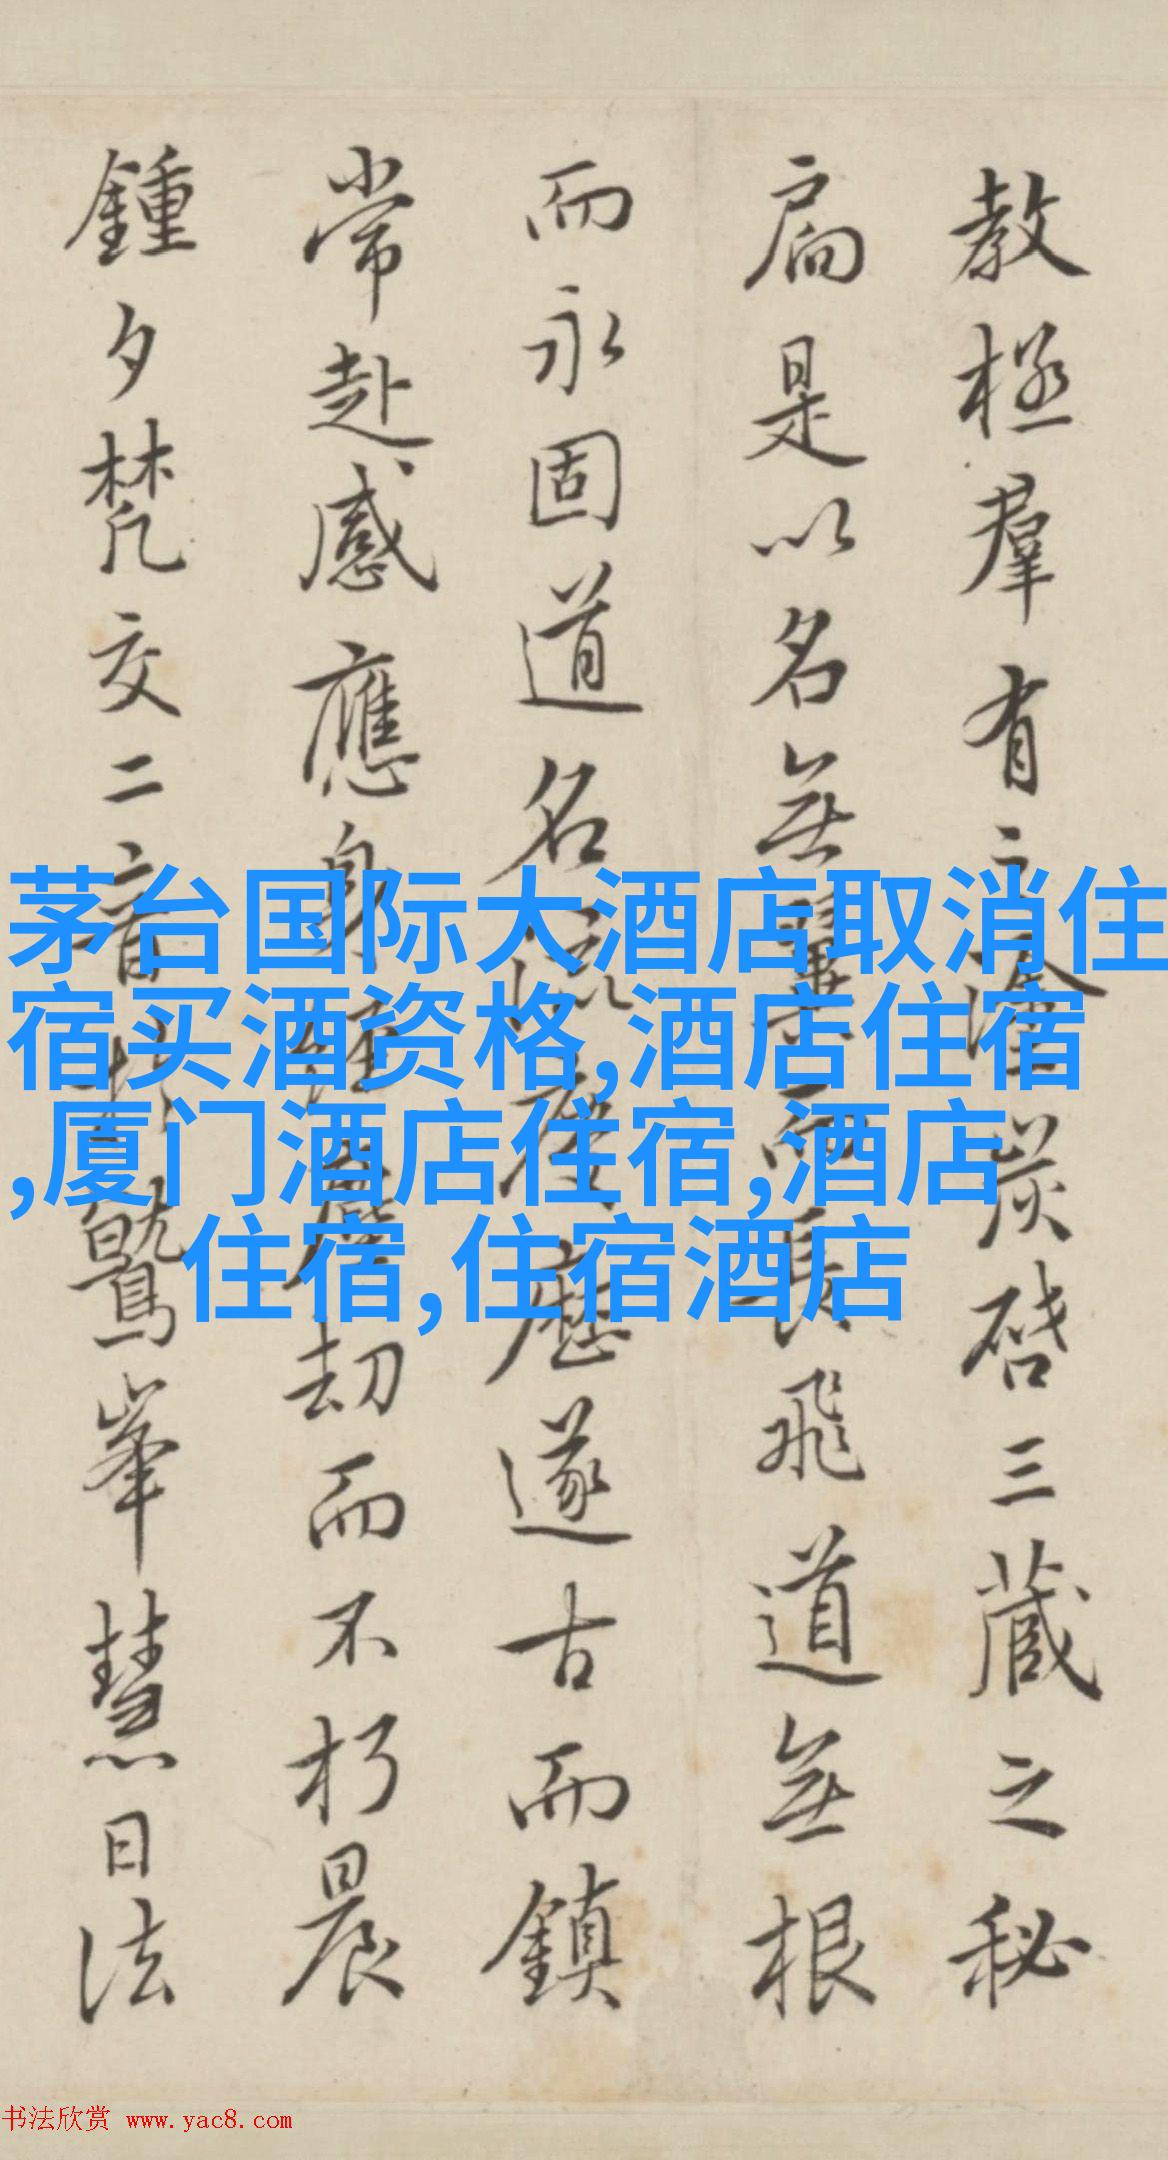 教極羣有之塗炭啓三藏之秘
扃是以名無翼而長飛道無根
而永固道名流慶歷遂古而鎮
常赴感應身經塵劫而不朽晨
鍾夕梵交二音於鷲峯慧日法
茅台国际大酒店取消住
宿买酒资格,酒店住宿
,厦门酒店住宿,酒店
住宿,住宿酒店
书法欣赏 www.yac8.com